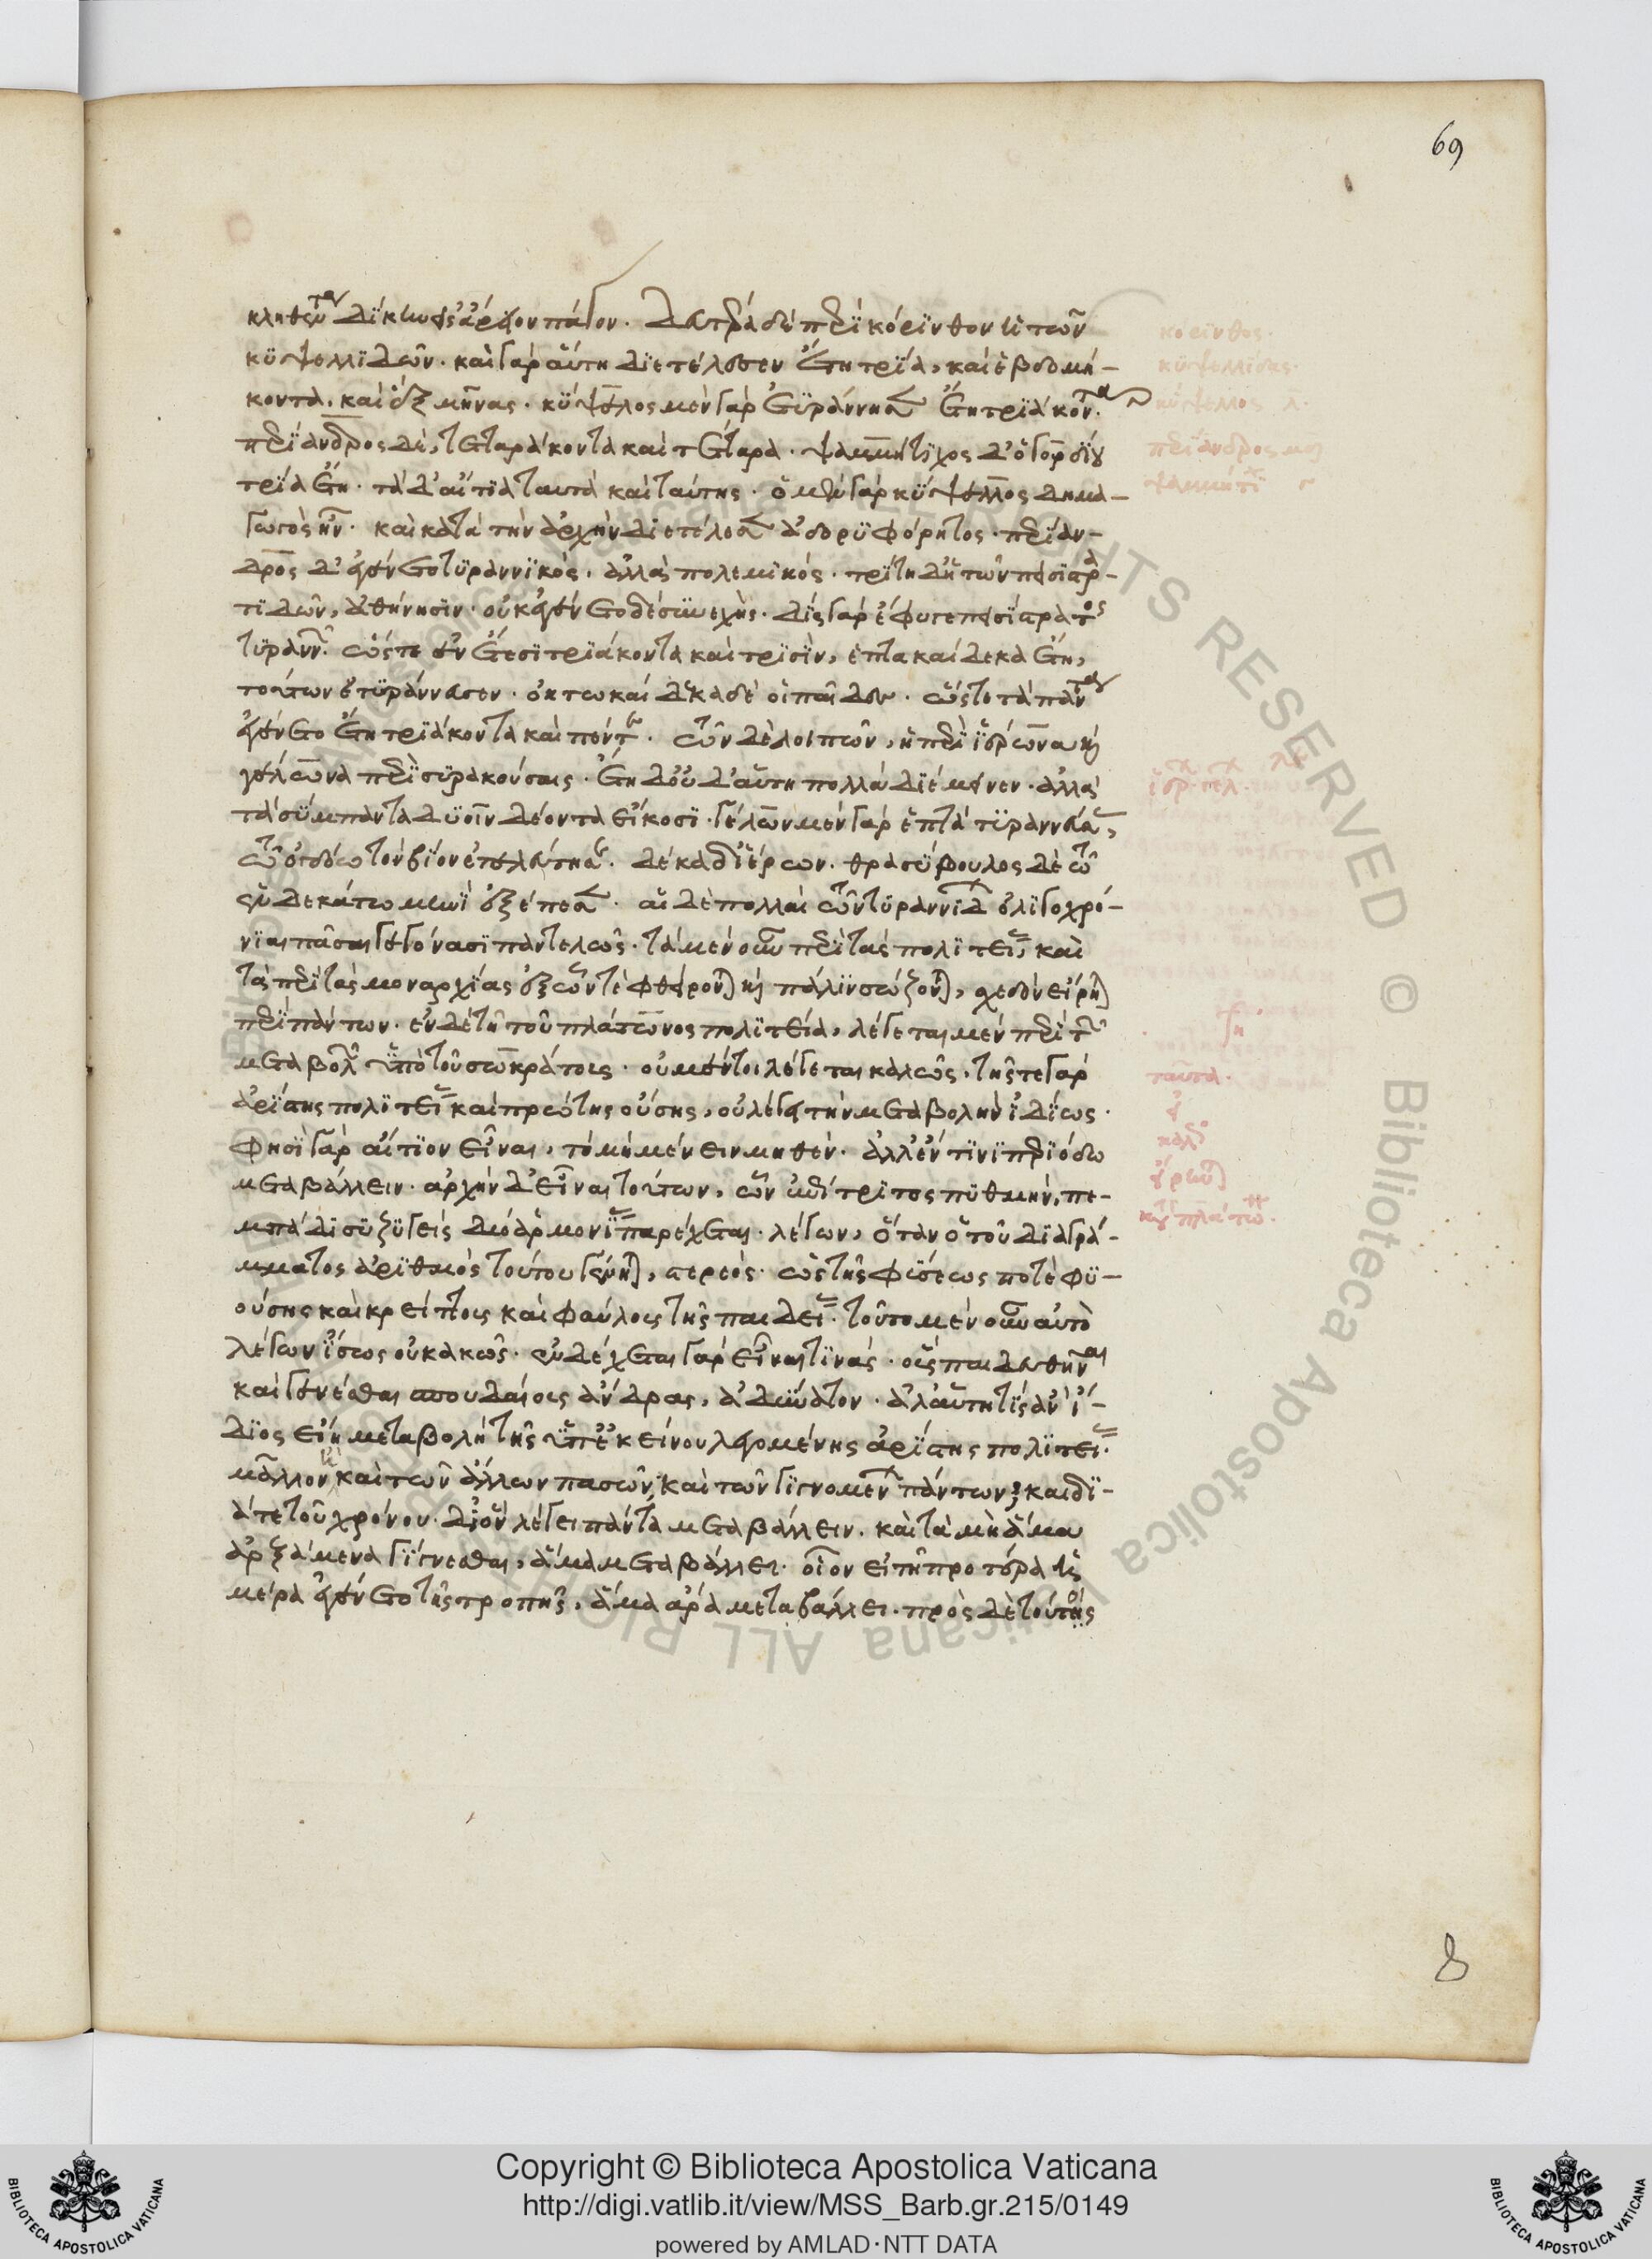 κληθέντα δίκην εἰς ἄρειον πάγον. δευτέρα δὲ περὶ κόρινθον ἡ τῶν
κυψελλιδῶν. καὶ γὰρ αὕτη διετέλεσεν ἔτη τρία, καὶ ἑβδομή-
κοντα. καὶ ἓξ μῆνας. κύψελος μὲν γὰρ ἐτυράννησεν ἔτη τριάκοντα.
περίανδρος δὲ, τετταράκοντα καὶ τέτταρα. ψαμμήτιχος δ' ὁ γορδίου
τρία ἔτη. τὰ δ' αἴτια ταυτὰ καὶ ταύτης. ὁ μὲν γὰρ κύψελλος δημα-
γωγὸς ἦν. καὶ κατὰ τὴν ἀρχὴν διετέλεσεν ἀδορυφόρητος. περίαν-
δρος δ' ἐγένετο τυραννικός, ἀλλὰ πολεμικός. τρίτη δ' ἡ τῶν πεισιστρα-
τιδῶν, ἀθήνησιν. οὐκ ἐγένετο δὲ συνεχής. δὶς γὰρ ἔφυγε πεισίστρατος
τυραννῶν. ὥστε ἐν ἔτεσι τριάκοντα καὶ τρισὶν, ἑπτὰ καὶ δέκα ἔτη,
τούτων ἐτυράννευσεν. ὀκτωκαίδεκα δὲ οἱ παῖδες. ὥστε τὰ πάντα
ἐγένετο ἔτη τριάκοντα καὶ πέντε. τῶν δὲ λοιπῶν, ἡ περὶ ἱέρωνα καὶ
γέλωνα περὶ συρακούσας. ἔτη δ' οὐδ' αὕτη πολλὰ διέμεινεν. ἀλλὰ
τὰ σύμπαντα δυοῖν δέοντα εἴκοσι. γέλων μὲν γὰρ ἑπτὰ τυραννεύσας,
τῷ ὀγδόῳ τὸν βίον ἐτελεύτησε. δέκα δ' ἱέρων. θρασύβουλος δὲ τῷ
ἑνδεκάτῳ μηνὶ ἐξέπεσεν. αἱ δὲ πολλαὶ τῶν τυραννίδων ὀλιγοχρό-
νιαι πᾶσαι γεγόνασι παντελῶς. τὰ μὲν οὖν περὶ τὰς πολιτείας, καὶ
τὰ περὶ τὰς μοναρχίας ἐξ ὧν τε φθείρονται καὶ πάλιν σώζονται, σχεδὸν εἴρηται
περὶ πάντων. ἐν δὲ τῇ τοῦ πλάτωνος πολιτεία, λέγεται μὲν περὶ τῶν
μεταβολῶν ὑπὸ τοῦ σωκράτους. οὐ μέντοι λέγεται καλῶς. τῆς τε γὰρ
ἀρίστης πολιτείας καὶ πρώτης οὔσης, οὐ λέγει τὴν μεταβολὴν ἰδίως.
φησὶ γὰρ αἴτιον εἶναι, τὸ μὴ μένειν μηθέν. ἀλλ' ἐν τινὶ περιόδω
μεταβάλλειν. ἀρχὴν δ' εἶναι τούτων, ὧν ἐπίτριτος πυθμὴν, πε-
μπάδι συζυγεὶς δύο ἁρμονίας παρέχεται. λέγων, ὅταν ὁ τοῦ διαγρά-
μματος ἀριθμὸς τούτου γένηται, στερεός. ὡς τῆς φύσεως ποτὲ φυ-
ούσης καὶ κρείττους καὶ φαύλους τῆς παιδείας. τοῦτο μὲν οὖν αὐτὸ
λέγων ἴσως οὐ κακῶς. ἐνδέχεται γὰρ εἶναι τινάς. οὓς παιδευθῆναι
καὶ γενέσθαι σπουδαίους ἄνδρας, ἀδύνατον. ἀλλ' αὕτη τίς ἂν ἴ-
διος εἴη μεταβολὴ τῆς ὑπ' ἐκείνου λεγομένης ἀρίστης πολιτείας.
μᾶλλον ἢ καὶ τῶν ἄλλων πασῶν, καὶ τῶν γιγνομένων πάντων; καὶ δι-
ά τε τοῦ χρόνου. δι' ὃν λέγει πάντα μεταβάλλειν. καὶ τὰ μὴ ἅμα
ἀρξάμενα γίγνεσθαι, ἅμα μεταβάλλει. οἷον εἰ τῇ προτέρα ἡ-
μέρα ἐγένετο τῆς τροπῆς, ἅμα ἄρα μεταβάλλει. πρὸς δὲ τούτοις
κόρινθος.
κυψελλίδας.
κύψελλος λ.
περίανδρος μδ
69
Copyright © Biblioteca Apostolica Vaticana
http://digi.vatlib.it/view/MSS_Barb.gr.215/0149
powered by AMLAD·NTT DATA
BIBLIOTECA APOSTOLICA VATICANA
BIBLIOTECA APOSTOLICA VATICANA